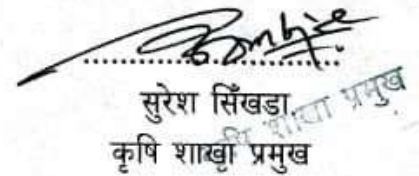 सुरेश सिँखडा
कृषि शाखा प्रमुख
शाखा प्रमुख